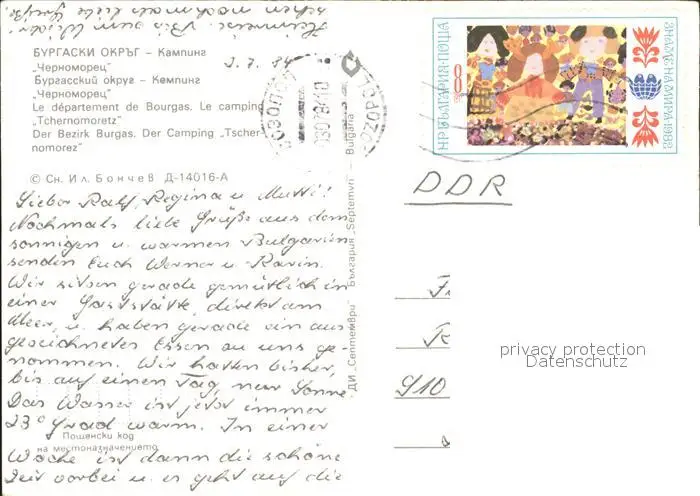 Heimreise.
БУРГАСКИ ОКРЪГ – Кампинг
„Черноморец"
Бургасский округ – Кемпинг
„Черноморец"
Le département de Bourgas. Le camping
„Tchernomoretz"
Der Bezirk Burgas. Der Camping „Tscher-
nomorez"
2.7.84
© Сн. Ил. Бончев Д-14016-А
Lieber Ralf, Regina u. Mutti!
Nochmals liebe Grüße aus dem
sonnigen u. warmen Bulgarien
senden Euch Werner u. Karin.
Wir sitzen gerade gemütlich in
einer Gaststätte, direkt am
Meer, u. haben gerade ein aus-
gezeichnetes Essen zu uns ge-
nommen. Wir hatten bisher,
bis auf einen Tag, nur Sonne.
Das Wasser ist jetzt immer
23° Grad warm. In einer
Woche ist dann die schöne
Zeit vorbei u. es geht auf die
Пощенски код
на местоназначението
ДИ „Септември" България „Septemvri" – Bulgaria
СОЗОПОЛ
SOZOPOL
НР БЪЛГАРИЯ·ПОЩА
8
ЗНАМЕ НА МИРА·1982
DDR
910
privacy protection
Datenschutz